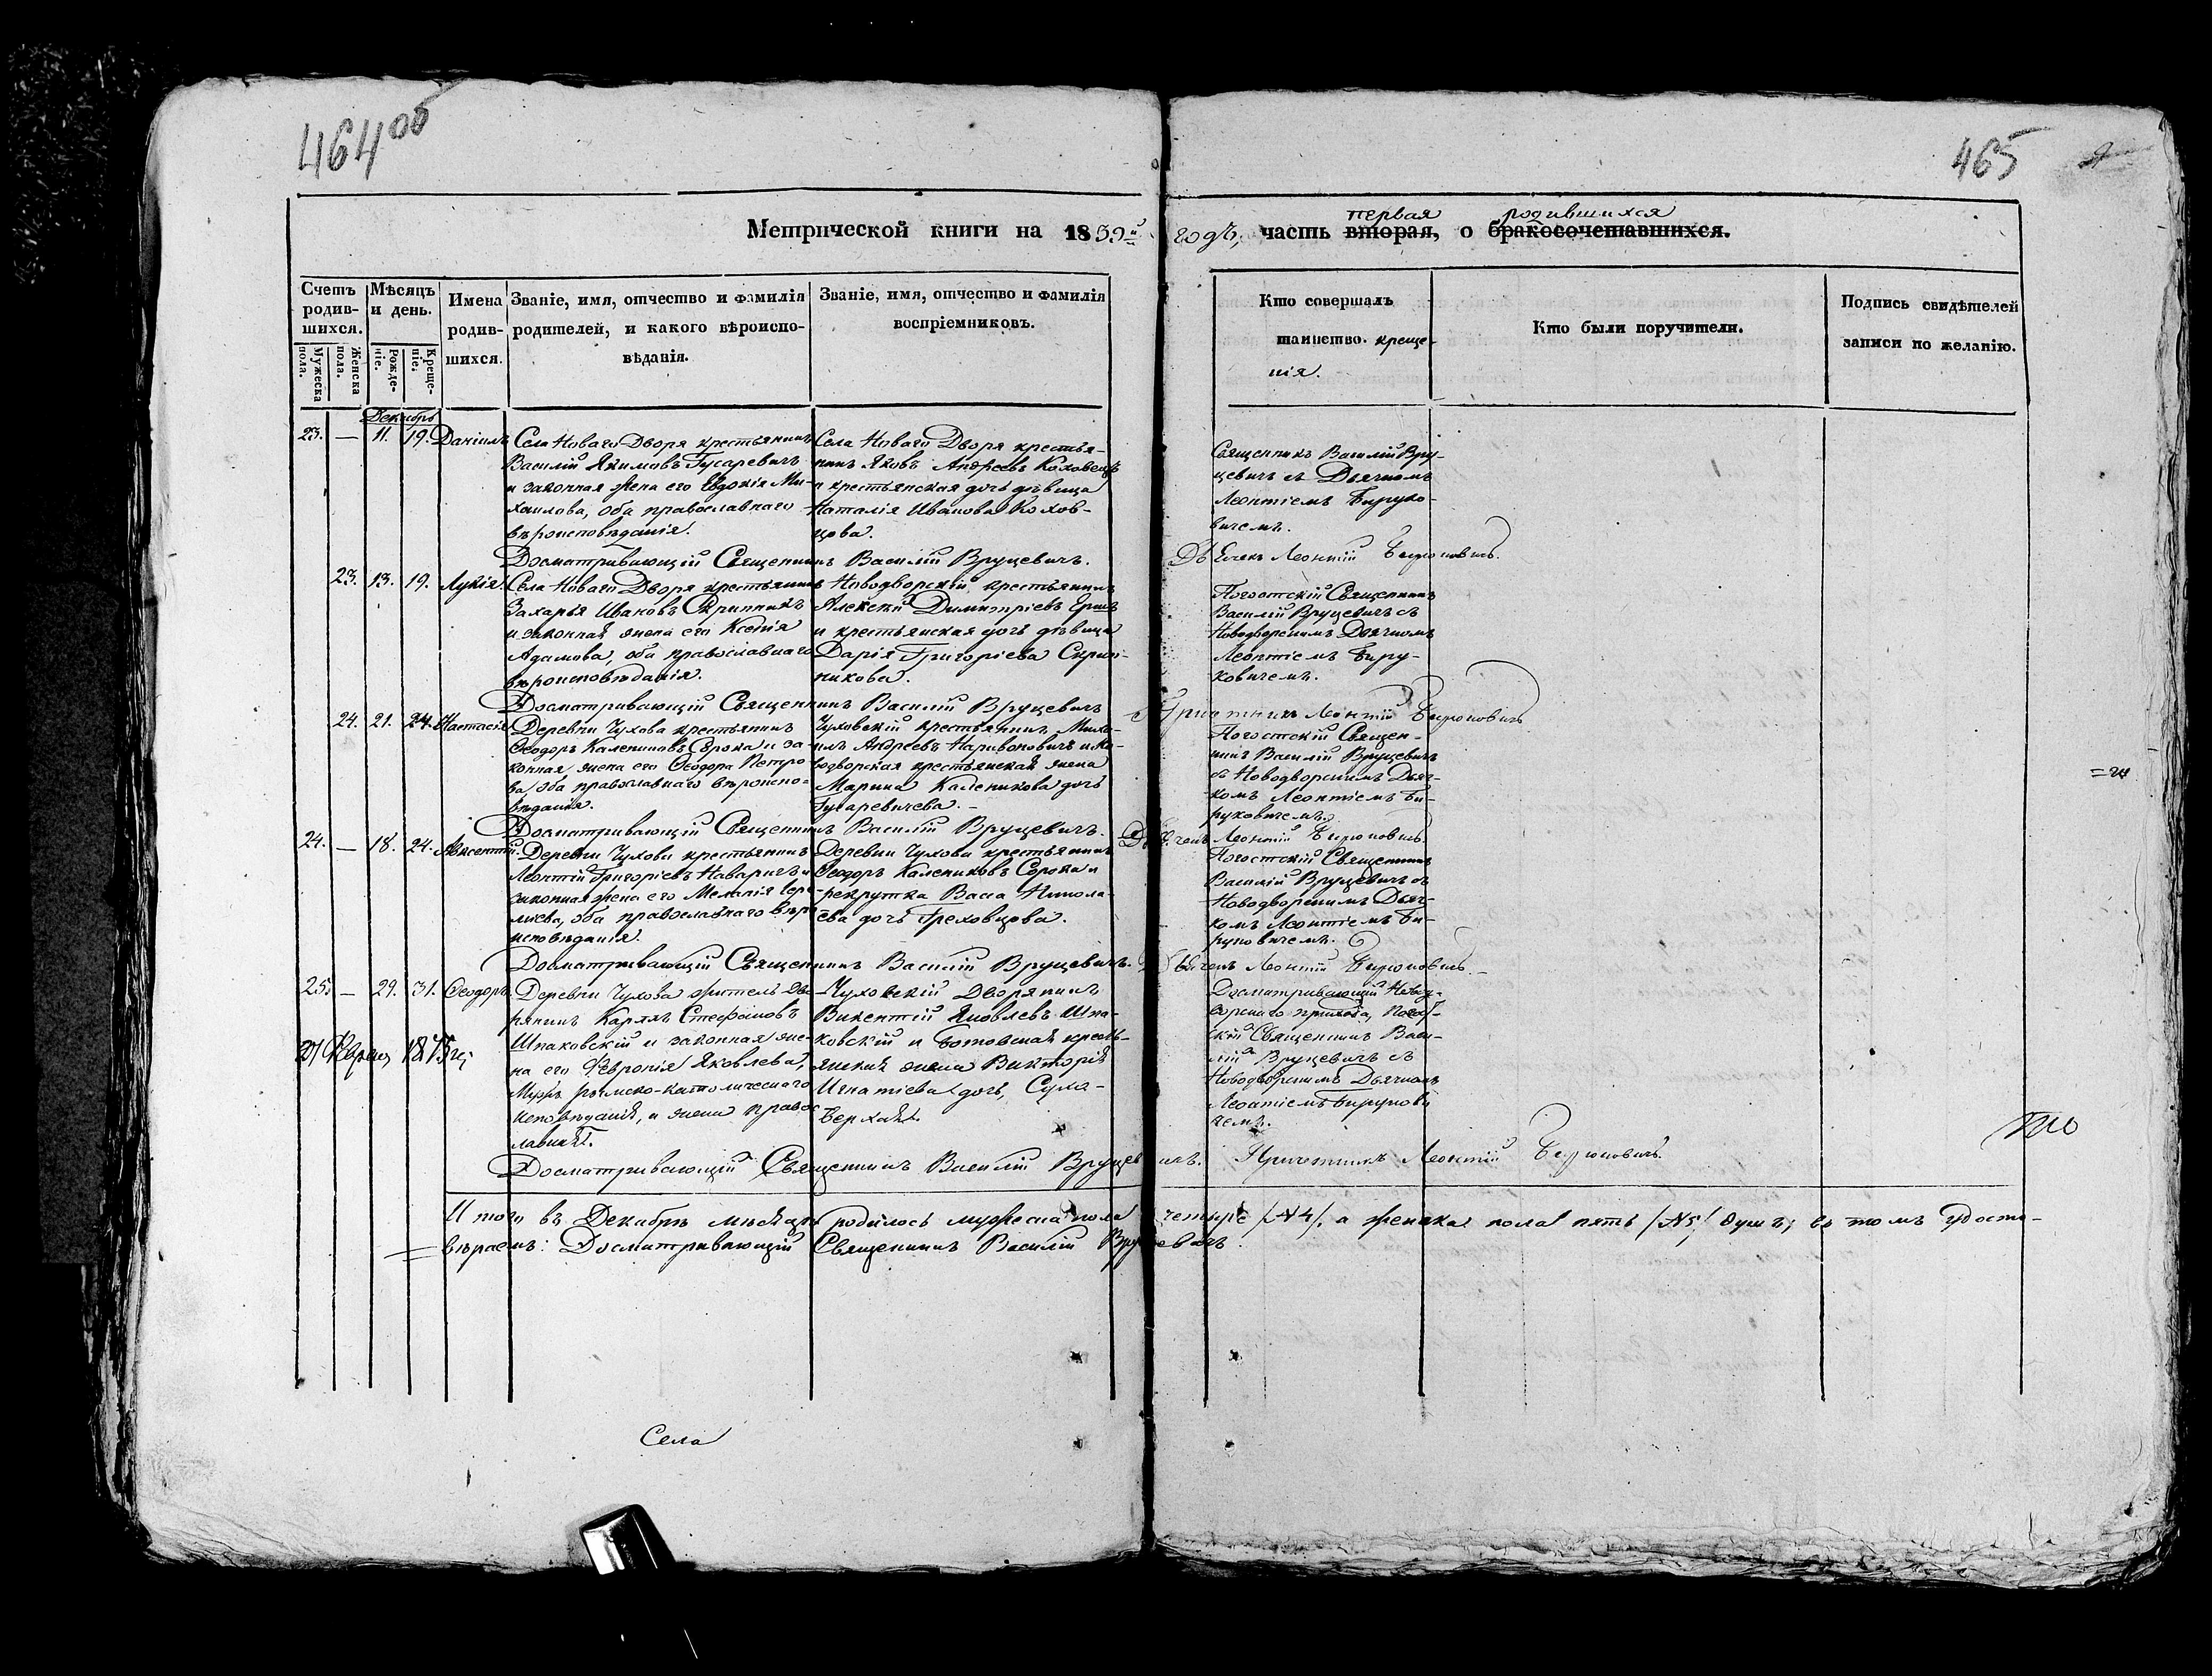 464 об
465
первая родившихся
Метрической книги на 1859й годъ, часть вторая, о бракосочетавшихся.
Счетъ родив-шихся.
Мужеска пола.
Женска пола.
Мѣсяцъ и день.
Рожде-ніе.
Креще-ніе.
Имена родив-шихся.
Званіе, имя, отчество и фамилія
родителей, и какого вѣроиспо-
вѣданія.
Званіе, имя, отчество и фамилія
воспріемниковъ.
Кто совершалъ
таинство. креще-
нія.
Кто были поручители.
Подпись свидѣтелей
записи по желанію.
Декабрь
23. — 11. 19. Даніилъ
Села Новаго Двора крестьянинъ
Василій Якимовъ Гусаревичъ
и законная жена его Евдокія Ми-
хаилова, оба православнаго
вѣроисповѣданія.
Села Новаго Двора крестья-
нинъ Яковъ Андреевъ Коховецъ
и крестьянская дочь дѣвица
Наталія Иванова Кохов-
цова.
Священникъ Василій Вру-
цевичъ съ Дьячкомъ
Леонтіемъ Бируко-
вичемъ.
Досматривающій Священникъ Василій Вруцевичъ. Дьячекъ Леонтій Бирюковичъ.
23. 13. 19. Лукія.
Села Новаго Двора крестьянинъ
Захарья Ивановъ Скрипникъ
и законная жена его Ксенія
Адамова, оба православнаго
вѣроисповѣданія.
Новодворскій крестьянинъ
Алексѣй Димитріевъ
и крестьянская дочь дѣвица
Дарія Григоріева Скрип-
никова.
Погостскій Священникъ
Василій Вруцевичъ съ
Новодворскимъ Дьячкомъ
Леонтіемъ Биру-
ковичемъ.
Досматривающій Священникъ Василій Вруцевичъ Причетникъ Леонтій Бирюковичъ
24. 21. 24. Настасія
Деревни Чухова крестьянинъ
Ѳеодоръ Калениковъ Сорока и за-
конная жена его Ѳеодора Петро-
ва, оба православнаго вѣроиспо-
вѣданія.
Чуховскій крестьянинъ Миха-
илъ Андреевъ и Но-
водворская крестьянская жена
Марина Каленикова дочь
Гусаревичева. -
Погостскій Священ-
никъ Василій Вруцевичъ
съ Новодворскимъ Дьяч-
комъ Леонтіемъ Би-
руковичемъ.
Досматривающій Священникъ Василій Вруцевичъ. Дьячекъ Леонтій Бирюковичъ
24. — 18. 24. Авксентій.
Деревни Чухови крестьянинъ
Леонтій Григоріевъ Наваричъ и
законная жена его Меланія
оба православнаго вѣро-
исповѣданія.
Деревни Чухови крестьянинъ
Ѳеодоръ Калениковъ Сорока и
рекрутка Васса Никола-
ева дочь Греховцова.
Погостскій Священникъ
Василій Вруцевичъ съ
Новодворскимъ Дьяч-
комъ Леонтіемъ Би-
руковичемъ.
Досматривающій Священникъ Василій Вруцевичъ. Дьячекъ Леонтій Бирюковичъ.
25. — 29. 31. Ѳеодоръ.
1875 г.
Деревни Чухова житель Дво-
рянинъ Карлъ Стефановъ
Шпаковскій и законная же-
на его Февронія Яковлева,
Мужъ римско-католическаго
исповѣданія, и жена правос-
лавная.
Чуховскій Дворянинъ
Викентій Яковлевъ Шпа-
ковскій и Ботовская кресть-
янская жена Викторія
Игнатіева дочь, Сухо-
верхая.
Досматривающій Новод-
ворскаго прихода, Погост-
скій Священникъ Васи-
лій Вруцевичъ съ
Новодворскимъ Дьячкомъ
Леонтіемъ Бирукови-
чемъ.
Досматривающій Священникъ Василій Вруцевичъ. Причетникъ Леонтій Бирюковичъ.
Итого въ Декабрѣ мѣсяцѣ родилось мужеска пола четыре /№4/, а женска пола пять /№5/ душъ; въ томъ удосто-
вѣряемъ: Досматривающій Священникъ Василій Вруцевичъ.
Села